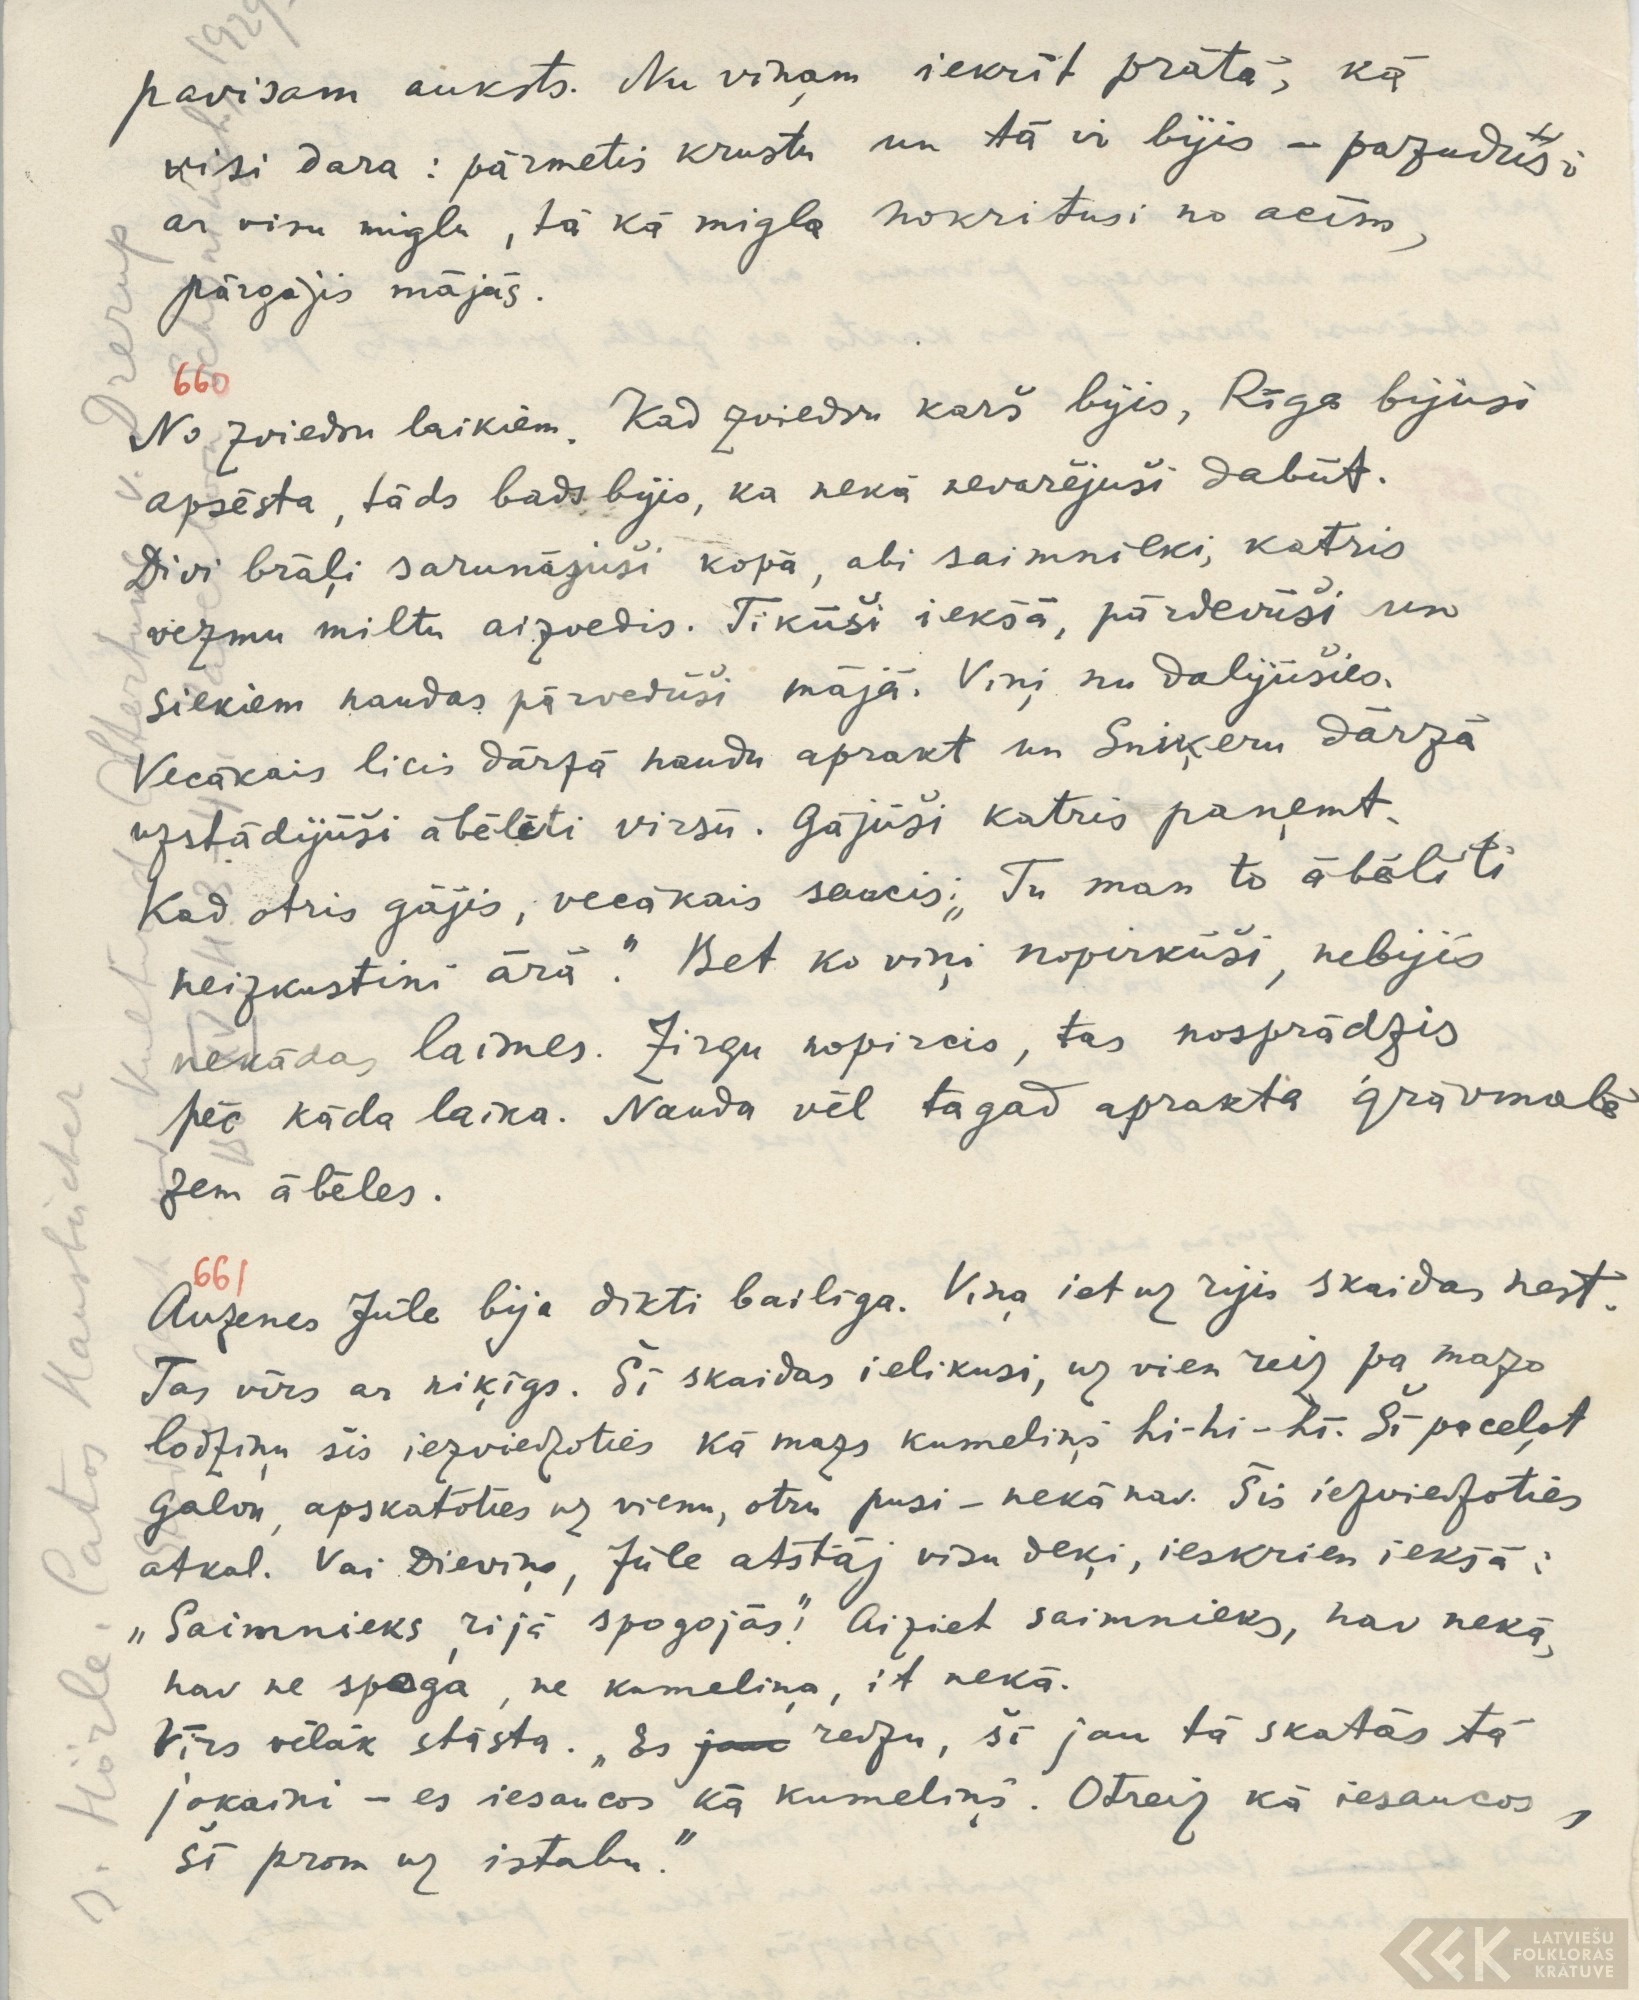 pavisam auksts. Nu viņam iekrīt prātā, kā
visi dara: pārmetis krustu un tā ir bijis – pazudusi
ar visu miglu, tā kā migla nokritusi no acīm,
pārgājis mājās.
660
No zviedru laikiem. Kad zviedru karš bijis, Rīga bijusi
apsēsta, tāds bads bijis, ka nekā nevarējuši dabūt.
Divi brāļi sarunājuši kopā, abi saimnieki, katris
vezmu miltu aizvedis. Tikuši iekšā, pārdevuši un
siekiem naudas pārveduši mājā. Viņi nu dalījušies.
Vecākais licis dārzā naudu aprakt un Sniķeru dārzā
uzstādijuši ābelēti virsū. Gājuši katris paņemt.
Kad otris gājis, vecākais saucis: „Tu man to ābelīti
neizkustini ārā." Bet ko viņi nopirkuši, nebijis
nekādas laimes. Zirgu nopircis, tas nosprādzis
pēc kāda laika. Nauda vēl tagad aprakta grāvmalē
zem ābeles.
661
Auzenes Jūle bija dikti bailīga. Viņa iet uz rijis skaidas nest.
Tas vīrs ar niķīgs. Šī skaidas ielikusi, uz vien reiz pa mazo
lodziņu šis iezviedzoties kā mazs kumeliņš hi-hi-hī. Šī paceļot
galvu, apskatoties uz vienu, otru pusi – nekā nav. Šis iezviedzoties
atkal. Vai Dieviņ, Jūle atstāj visu deķi, ieskrien iekšā:
„Saimnieks, rijā spogojās"! Aiziet saimnieks, nav nekā,
nav ne spoga, ne kumeliņa, it nekā.
Vīrs vēlāk stāsta. „Es jau redzu, šī jau tā skatās tā
jokaini – es iesaucos kā kumeliņš. Otreiz kā iesaucos,
šī prom uz istabu."
J. Hörle. Catos Hausbücher
LATVIEŠU
FOLKLORAS
KRĀTUVE